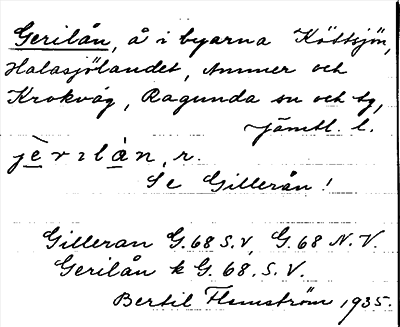 Gerilån, å i byarna Köttsjön,
Halasjölandet, Ammer och
Krokvåg, Ragunda sn och tg,
Jämtl. l.
jèrılȧ̀n, r.
Se Gillerån!
Gilleran G.68 S.V, G.68 N.V.
Gerilån k G. 68. S.V.
Bertil Flemström 1935.